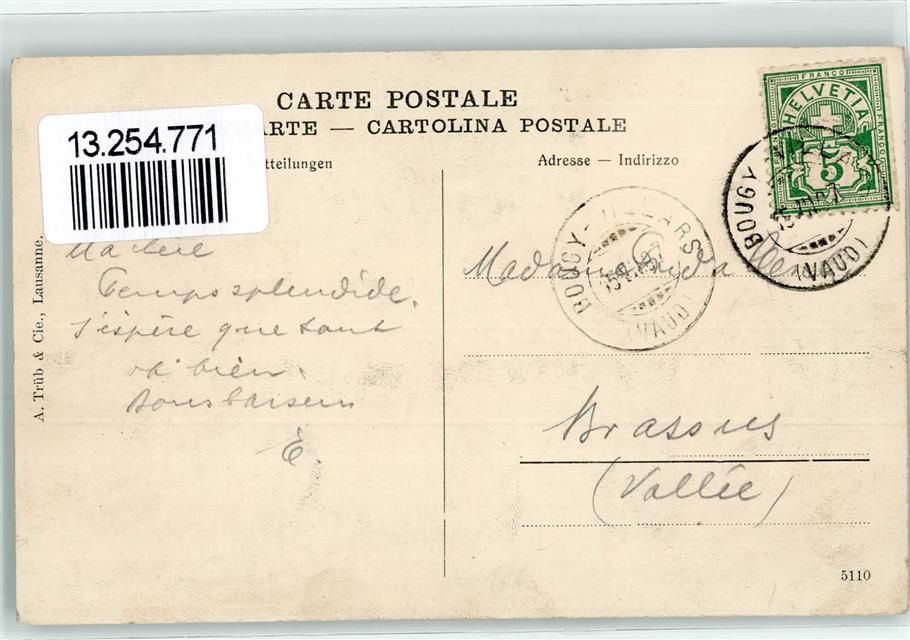 CARTE POSTALE
ARTE — CARTOLINA POSTALE
tteilungen
Adresse — Indirizzo
13.254.771
FRANCO
HELVETIA
FRANCO
5
BOUGY-VILLARS
(VAUD)
BOUGY-VILLARS
(VAUD)
A. Trüb & Cie., Lausanne.
Ma
Temps splendide.
J'espère que tout
va bien.
Bons baisers
E.
Brassus
(Vallée)
5110